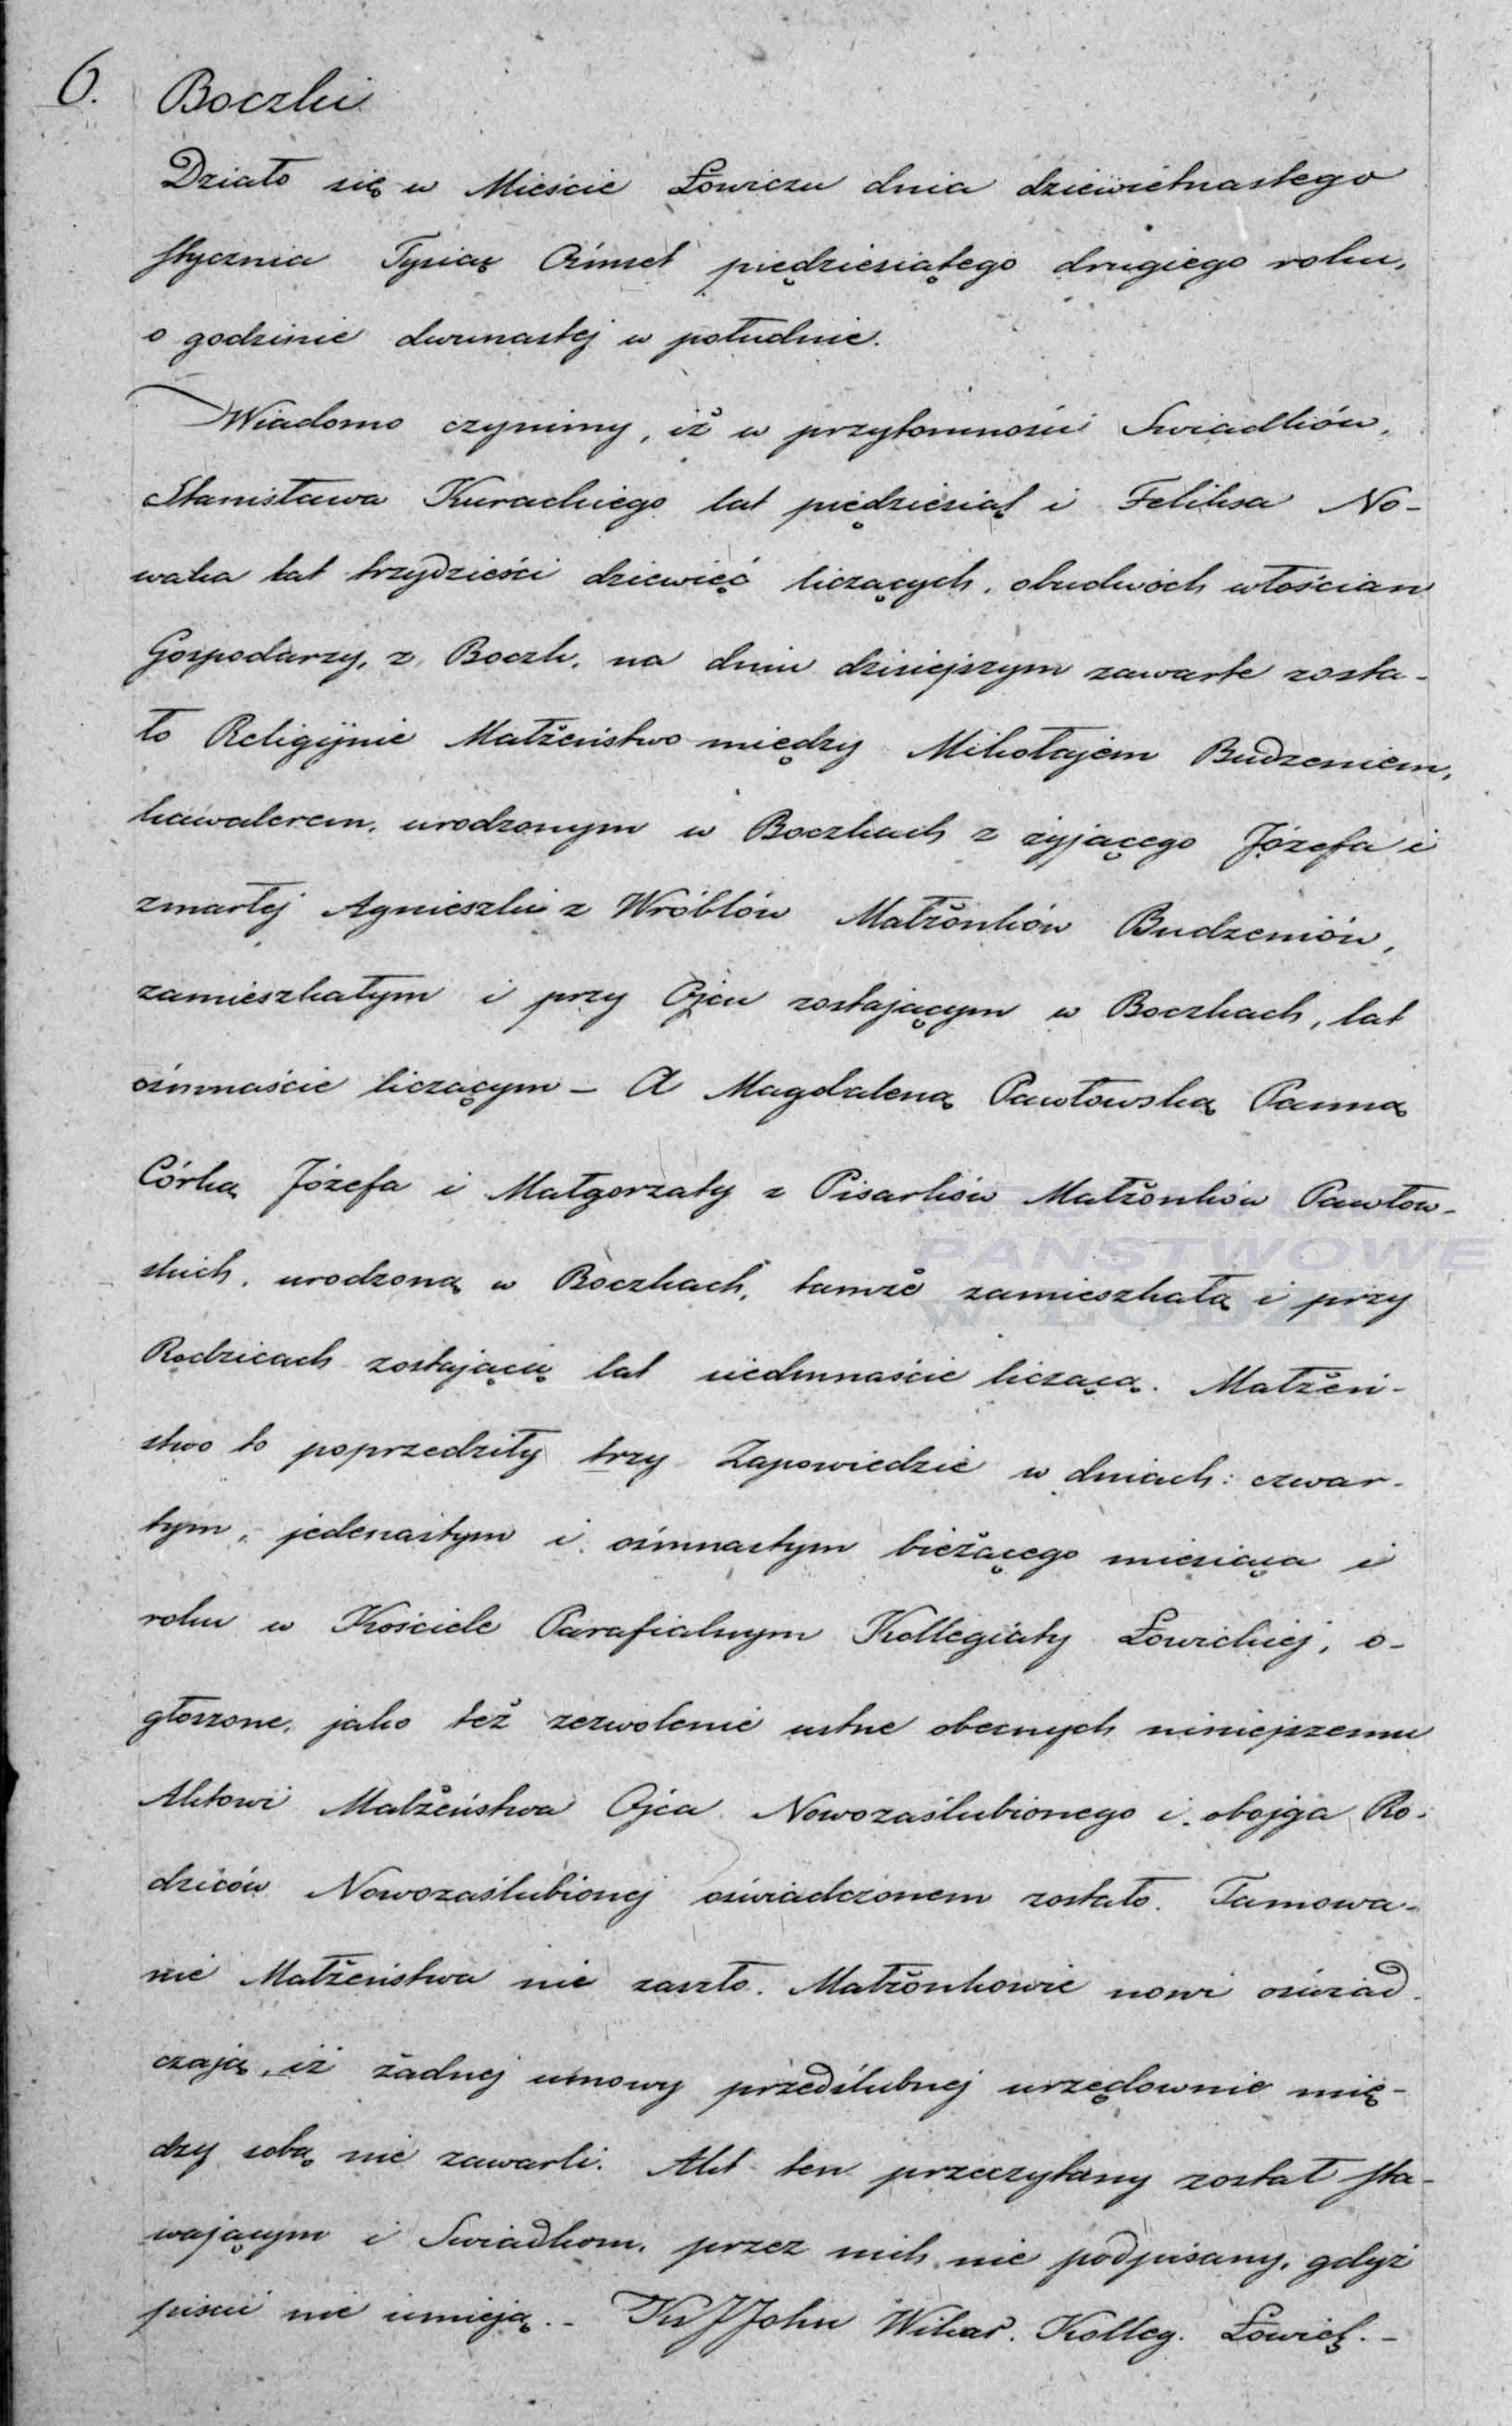 6. Boczki
Działo się w Mieście Łowiczu dnia dziewietnastego
stycznia Tysiąc Ośmset pięдziesiątego drugiego roku,
o godzinie dwunastej w południe.
Wiadomo czynimy, iż w przytomności Swiadków,
Stanisława Kurackiego lat piędziesiąt i Feliksa No-
waka lat trzydzieści dziewięć liczących, obudwóch włościan
Gospodarzy, z Boczk, na dniu dzisiejszym zawarte zosta-
ło Religijnie Małżeństwo między Mikołajem Budzeniem,
kawalerem, urodzonym w Boczkach z żyjącego Józefa i
zmarłej Agnieszki z Wróblów Małżonków Budzeniów,
zamieszkałym i przy Ojcu zostającym w Boczkach, lat
ośmnaście liczącym – A Magdaleną Pawłowską Panną
Córką Józefa i Małgorzaty z Pisarków Małżonków Pawłow-
skich, urodzoną w Boczkach, tamże zamieszkałą i przy
Rodzicach zostającą lat siedmnaście liczącą. Małżeń-
stwo to poprzedziły trzy Zapowiedzie w dniach: czwar-
tym, jedenastym i ośmnastym bieżącego miesiąca i
roku w Kościele Parafialnym Kollegiaty Łowickiej, o-
głoszone, jako też zezwolenie ustne obecnych niniejszemu
Aktowi Małżeństwa Ojca Nowozaślubionego i obojga Ro-
dziców Nowozaślubionej oświadczonem zostało. Tamowa-
nie Małżeństwa nie zaszło. Małżonkowie nowi oświad-
czają, iż żadnej umowy przedślubnej urzędownie mię-
dzy sobą nie zawarli. Akt ten przeczytany został sta-
wającym i Swiadkom, przez nich nie podpisany, gdyż
pisać nie umieją. – Ks J John Wikar. Kolleg. Łowick. –
PAŃSTWOWE
W ŁODZI